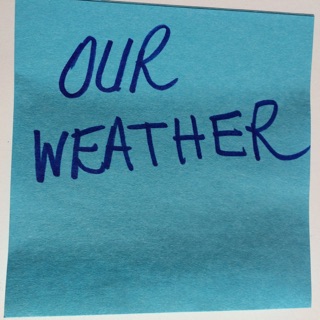 OUR
WEATHER